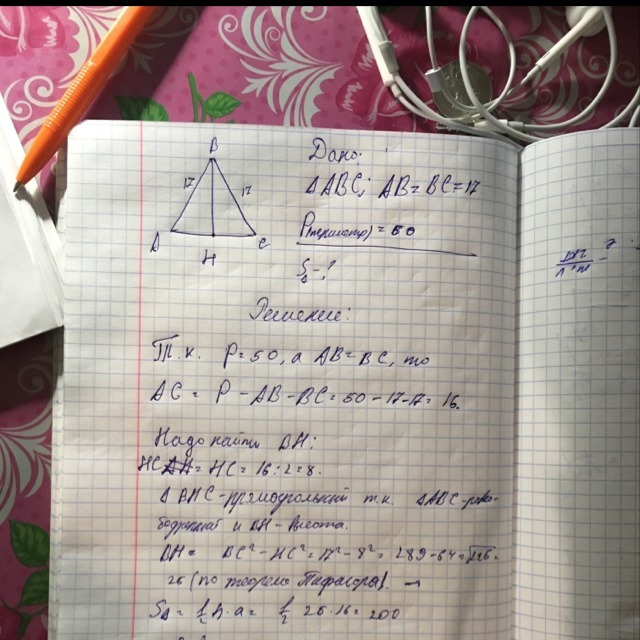 B
Дано:
17
17
ΔABC; AB=BC=17
A
C
P(периметр) = 50
H
S△-?
Решение:
Т.к. P=50, а AB=BC, то
AC = P - AB - BC = 50 - 17 - 17 = 16.
Надо найти BH:
HC = HC = 16:2=8.
ΔBHC-прямоугольный т.к. ΔABC-равно-
бедренный и BH-высота.
BH = BC² - HC² = 17² - 8² = 289 - 64 =
25 (по теореме Пифагора).
S△ = ½ h·a = ½ 25·16 = 200